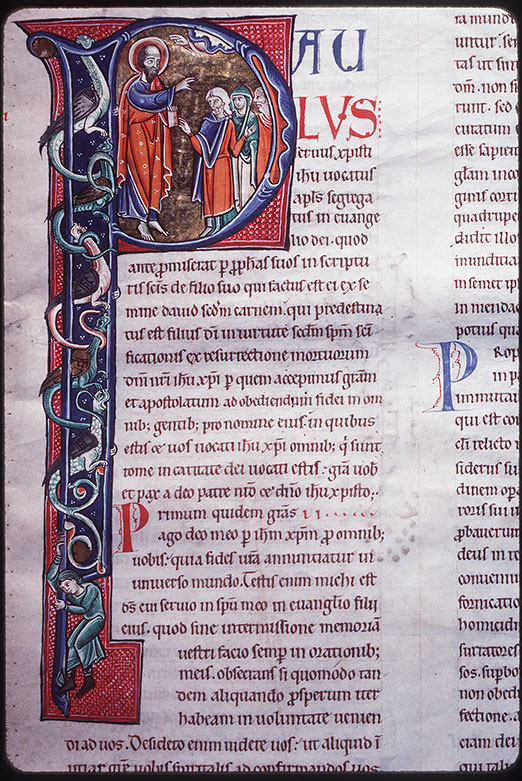 PAU
LVS
seruus xpisti
ihu uocatus
apls segrega
tus in euange
lio dei. quod
ante promiserat p pphas suos in scriptu
ris scis de filio suo qui factus est ei ex se
mine dauid scdm carnem. qui predestina
tus est filius di in uirtute scdm spm sci
ficationis ex resurrectione mortuorum
dni nri ihu xpi p quem accepimus gram
et apostolatum ad obediendum fidei in om
nib; gentib; pro nomine eius. in quibus
estis & uos uocati ihu xpi omnib; q sunt
rome in caritate dei uocati estis. gra uob
et pax a deo patre nro & dno ihu xpisto;.
Primum quidem gras
ago deo meo p ihm xpm pro omnib;
uobis. quia fides ura annuntiatur in
uniuerso mundo. Testis enim michi est
ds cui seruio in spu meo in euanglio filii
eius. quod sine intermissione memoriam
uestri facio semp in orationib;
meis. obsecrans si quomodo tan
dem aliquando prosperum iter
habeam in uoluntate uenien
di ad uos. Desidero enim uidere uos. ut aliquid i
uobis spiritalis ad confirmandos uos
ra mundi
tas ut sint
dm. non si
runt. sed
curatum e
esse sapien
glam inco
ginis corru
quadrupe
didit illo
inmunditia
in semet ip
in menda
potius qua
Prop
in p
inmutau
qui est co
relicto
sideriis su
dinem ope
roris sui i
pbauerun
deus in re
conueniu
fornicatio
homicidi
susurratores
sos. supbo
non obed
fectione. a
ciam dei